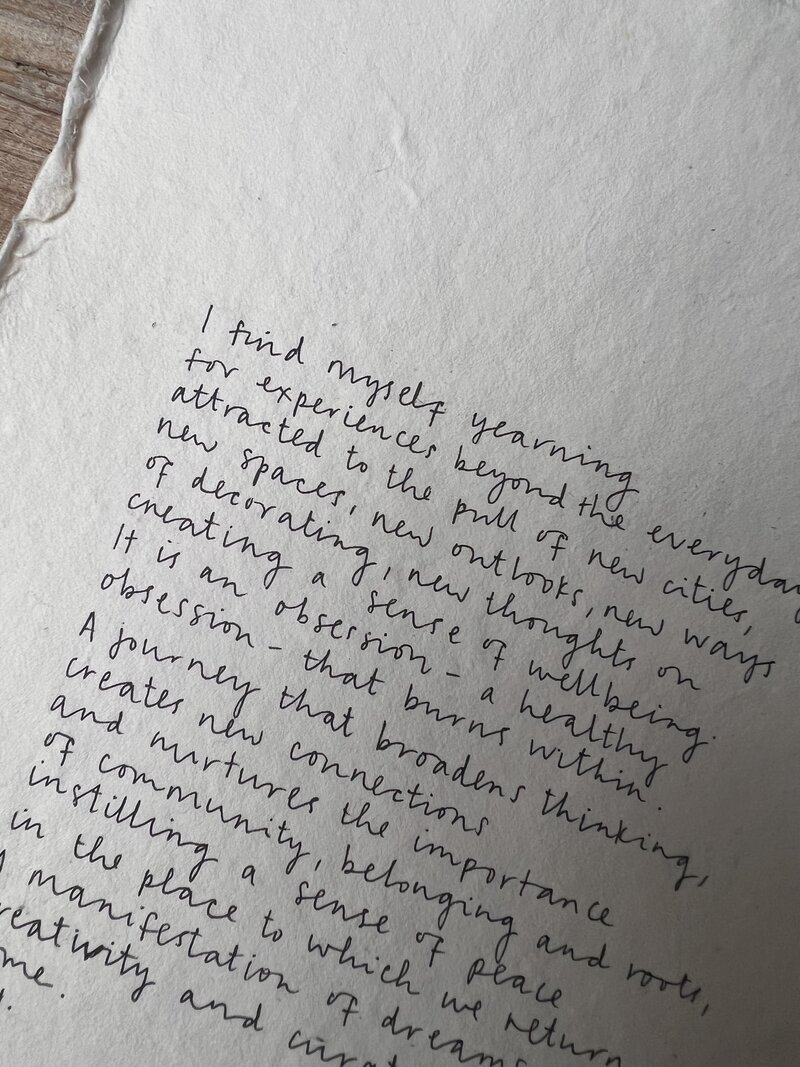 I find myself yearning
for experiences beyond the everyday
attracted to the pull of new cities,
new spaces, new outlooks, new ways
of decorating, new thoughts on
creating a sense of wellbeing.
It is an obsession - a healthy
obsession - that burns within.
A journey that broadens thinking,
creates new connections
and nurtures the importance
of community, belonging and roots,
instilling a sense of peace
in the place to which we return
manifestation of dreams
and